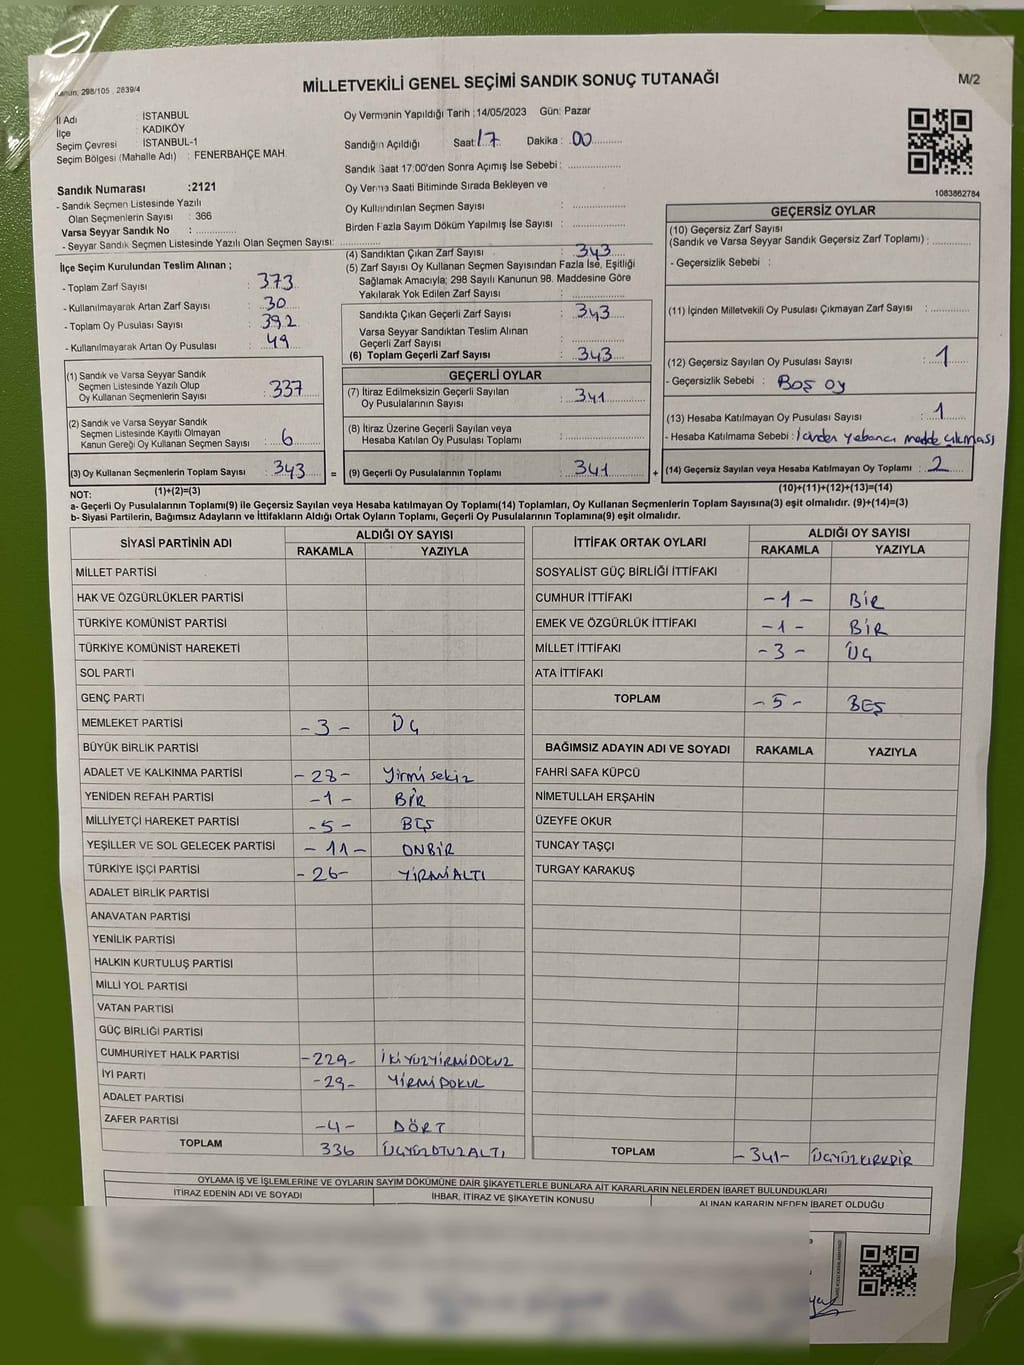 Kanun: 298/105 , 2839/4
MİLLETVEKİLİ GENEL SEÇİMİ SANDIK SONUÇ TUTANAĞI
M/2
İl Adı : İSTANBUL
İlçe : KADIKÖY
Seçim Çevresi : İSTANBUL-1
Seçim Bölgesi (Mahalle Adı) : FENERBAHÇE MAH.
Sandık Numarası :2121
- Sandık Seçmen Listesinde Yazılı
Olan Seçmenlerin Sayısı : 366
Varsa Seyyar Sandık No :
- Seyyar Sandık Seçmen Listesinde Yazılı Olan Seçmen Sayısı:
Oy Vermenin Yapıldığı Tarih :14/05/2023 Gün: Pazar
Sandığın Açıldığı Saat: 17 Dakika : 00
Sandık Saat 17:00'den Sonra Açılmış İse Sebebi :
Oy Verme Saati Bitiminde Sırada Bekleyen ve
Oy Kullandırılan Seçmen Sayısı :
Birden Fazla Sayım Döküm Yapılmış İse Sayısı :
1083862784
İlçe Seçim Kurulundan Teslim Alınan ;
- Toplam Zarf Sayısı : 373
- Kullanılmayarak Artan Zarf Sayısı : 30
- Toplam Oy Pusulası Sayısı : 392
- Kullanılmayarak Artan Oy Pusulası : 49
(1) Sandık ve Varsa Seyyar Sandık
Seçmen Listesinde Yazılı Olup
Oy Kullanan Seçmenlerin Sayısı : 337
(2) Sandık ve Varsa Seyyar Sandık
Seçmen Listesinde Kayıtlı Olmayan
Kanun Gereği Oy Kullanan Seçmen Sayısı : 6
(3) Oy Kullanan Seçmenlerin Toplam Sayısı : 343
(4) Sandıktan Çıkan Zarf Sayısı : 343
(5) Zarf Sayısı Oy Kullanan Seçmen Sayısından Fazla İse, Eşitliği
Sağlamak Amacıyla; 298 Sayılı Kanunun 98. Maddesine Göre
Yakılarak Yok Edilen Zarf Sayısı :
Sandıkta Çıkan Geçerli Zarf Sayısı : 343
Varsa Seyyar Sandıktan Teslim Alınan
Geçerli Zarf Sayısı :
(6) Toplam Geçerli Zarf Sayısı : 343
GEÇERLİ OYLAR
(7) İtiraz Edilmeksizin Geçerli Sayılan
Oy Pusulalarının Sayısı : 341
(8) İtiraz Üzerine Geçerli Sayılan veya
Hesaba Katılan Oy Pusulası Toplamı :
= (9) Geçerli Oy Pusulalarının Toplamı : 341
GEÇERSİZ OYLAR
(10) Geçersiz Zarf Sayısı
(Sandık ve Varsa Seyyar Sandık Geçersiz Zarf Toplamı) :
- Geçersizlik Sebebi :
(11) İçinden Milletvekili Oy Pusulası Çıkmayan Zarf Sayısı :
(12) Geçersiz Sayılan Oy Pusulası Sayısı : 1
- Geçersizlik Sebebi : Boş oy
(13) Hesaba Katılmayan Oy Pusulası Sayısı : 1
- Hesaba Katılmama Sebebi : İçinden yabancı madde çıkması
+ (14) Geçersiz Sayılan veya Hesaba Katılmayan Oy Toplamı : 2
NOT: (1)+(2)=(3)
(10)+(11)+(12)+(13)=(14)
a- Geçerli Oy Pusulalarının Toplamı(9) ile Geçersiz Sayılan veya Hesaba katılmayan Oy Toplamı(14) Toplamları, Oy Kullanan Seçmenlerin Toplam Sayısına(3) eşit olmalıdır. (9)+(14)=(3)
b- Siyasi Partilerin, Bağımsız Adayların ve İttifakların Aldığı Ortak Oyların Toplamı, Geçerli Oy Pusulalarının Toplamına(9) eşit olmalıdır.
SİYASİ PARTİNİN ADI
ALDIĞI OY SAYISI
RAKAMLA YAZIYLA
MİLLET PARTİSİ
HAK VE ÖZGÜRLÜKLER PARTİSİ
TÜRKİYE KOMÜNİST PARTİSİ
TÜRKİYE KOMÜNİST HAREKETİ
SOL PARTİ
GENÇ PARTİ
MEMLEKET PARTİSİ -3- ÜÇ
BÜYÜK BİRLİK PARTİSİ
ADALET VE KALKINMA PARTİSİ -28- Yirmi sekiz
YENİDEN REFAH PARTİSİ -1- BİR
MİLLİYETÇİ HAREKET PARTİSİ -5- BEŞ
YEŞİLLER VE SOL GELECEK PARTİSİ -11- ONBİR
TÜRKİYE İŞÇİ PARTİSİ -26- YİRMİALTI
ADALET BİRLİK PARTİSİ
ANAVATAN PARTİSİ
YENİLİK PARTİSİ
HALKIN KURTULUŞ PARTİSİ
MİLLİ YOL PARTİSİ
VATAN PARTİSİ
GÜÇ BİRLİĞİ PARTİSİ
CUMHURİYET HALK PARTİSİ -229- İKİYÜZYİRMİDOKUZ
İYİ PARTİ -29- YİRMİDOKUZ
ADALET PARTİSİ
ZAFER PARTİSİ -4- DÖRT
TOPLAM 336 ÜÇYÜZOTUZALTI
İTTİFAK ORTAK OYLARI
ALDIĞI OY SAYISI
RAKAMLA YAZIYLA
SOSYALİST GÜÇ BİRLİĞİ İTTİFAKI
CUMHUR İTTİFAKI -1- BİR
EMEK VE ÖZGÜRLÜK İTTİFAKI -1- BİR
MİLLET İTTİFAKI -3- ÜÇ
ATA İTTİFAKI
TOPLAM -5- BEŞ
BAĞIMSIZ ADAYIN ADI VE SOYADI RAKAMLA YAZIYLA
FAHRİ SAFA KÜPCÜ
NİMETULLAH ERŞAHİN
ÜZEYFE OKUR
TUNCAY TAŞÇI
TURGAY KARAKUŞ
TOPLAM -341- ÜÇYÜZKIRKBİR
OYLAMA İŞ VE İŞLEMLERİNE VE OYLARIN SAYIM DÖKÜMÜNE DAİR ŞİKAYETLERLE BUNLARA AİT KARARLARIN NELERDEN İBARET BULUNDUKLARI
İTİRAZ EDENİN ADI VE SOYADI İHBAR, İTİRAZ VE ŞİKAYETİN KONUSU ALINAN KARARIN NEDEN İBARET OLDUĞU